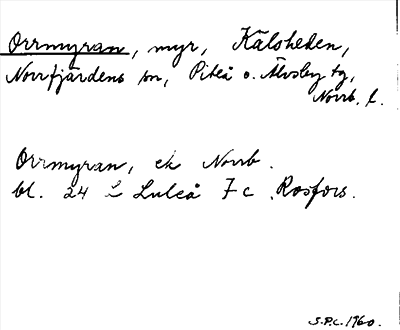 Orrmyran, myr, Kälsheden,
Norrfjärdens sn, Piteå o. Älvsby tg,
Norrb. l.
Orrmyran, ek Norrb.
bl. 24 Luleå 7 c Rosfors.
S.P.C. 1960.